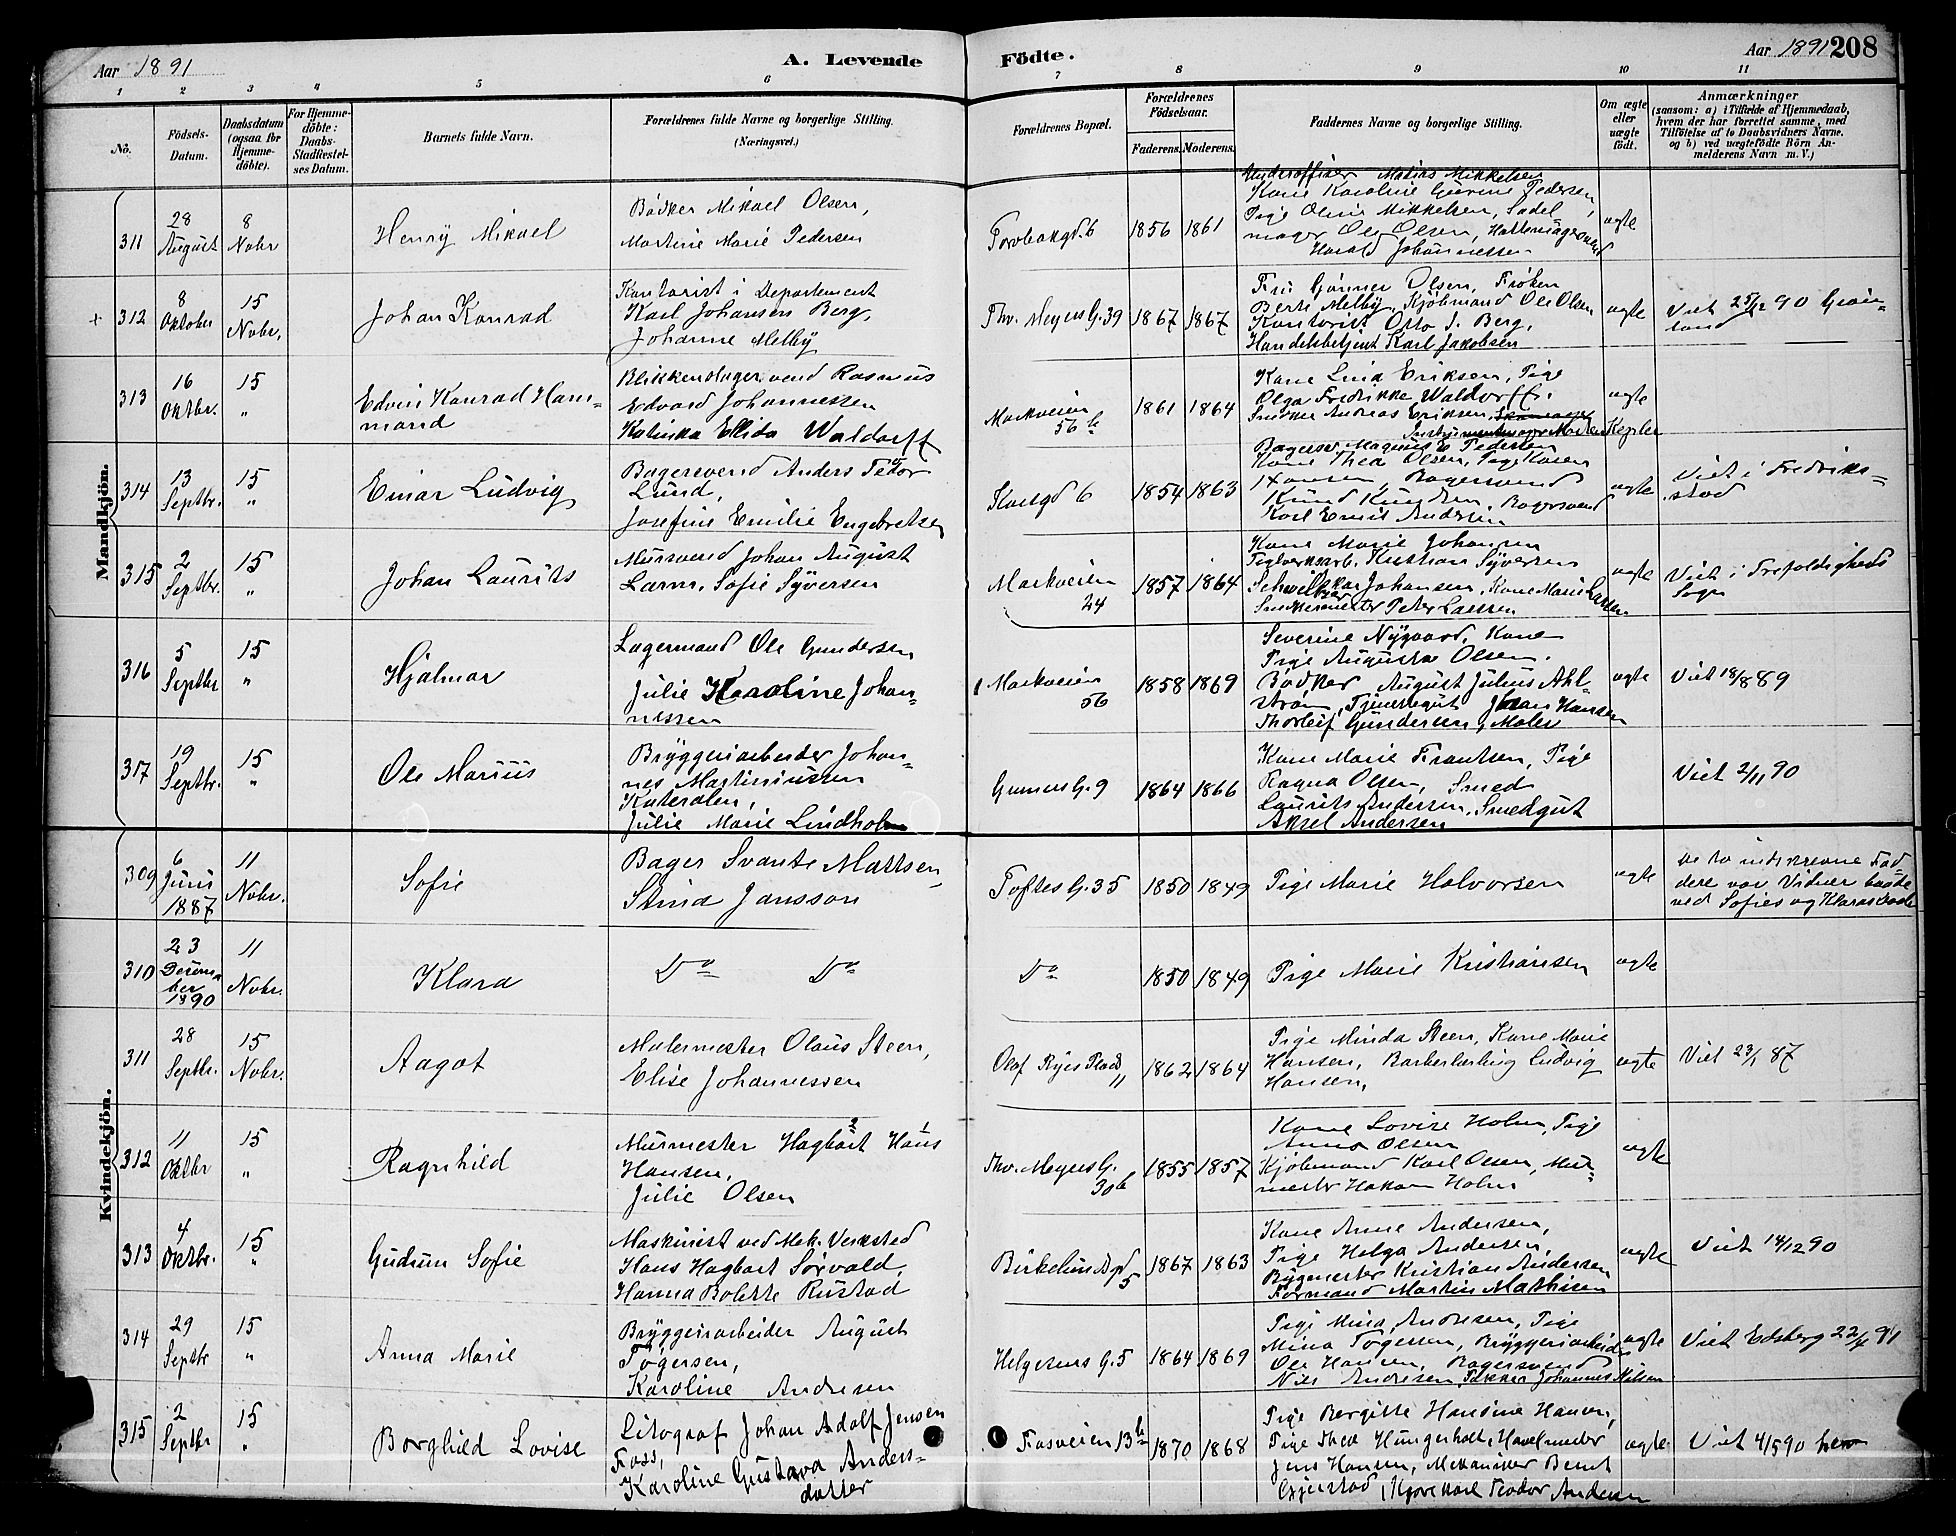 Aar 1891
A. Levende
Födte.
Aar 1891
208
1 2 3 4 5 6 7 8 9 10 11
No.
Födsels-Datum.
Daabsdatum (ogsaa for Hjemme-döbte).
For Hjemme-döbte: Daabs-Stadfæstelses Datum.
Barnets fulde Navn.
Forældrenes fulde Navne og borgerlige Stilling. (Næringsvei.)
Forældrenes Bopæl.
Forældrenes Födselsaar.
Faderens. Moderens.
Faddernes Navne og borgerlige Stilling.
Om ægte eller uægte födt.
Anmærkninger
(saasom: a) i Tilfælde af Hjemmedaab, hvem der har forrettet samme, med Tilföielse af to Daabsvidners Navne. og b) ved uægtefödte Börn Anmelderens Navn m. V.)
Mandkjön.
311
28 August
8 Nobr
Henry Mikael
Bödker Mikael Olsen,
Martine Marie Pedersen
1856 1861
Underoffiser Matias Mikkelsen
Kone Karoline Gurine Pedersen,
Pige Oline Mikkelsen, Sadel
mager Ole Olsen,
Harald Johannessen
ægte
+ 312
8 Oktober
15 Nobr.
Johan Konrad
Kontorist i Departement
Karl Johansen Berg,
Johanne Melby
Thv. Meyers G. 39
1867 1867
Fru Gunner Olsen, Fröken
Berte Melby, Kjöbmand Ole Olsen
Kontorist Otto J. Berg,
Handelsbetjent Karl Jakobsen
ægte
313
16 Oktbr.
15 "
Edvin Konrad Ham-
mand
Blikkenslagersvend Rasmus
Edvard Johannessen
Katinka Elida Waldorff
Markveien
56 b
1861 1864
Kone Lina Eriksen, Pige
Olga Fredrikke Waldorff.
Snedker Andreas Eriksen,
ægte
314
13 Septbr.
15 "
Einar Ludvig
Bagersvend Anders Fedor
Lund,
Josefine Emilie Engebretsen
1854 1863
Bagersv. Magnus E Pedersen
Kone Thea Olsen, Pige Karen
Hansen, Bagersvend
Knud Knudsen, Bagersvend
Karl Emil Andersen
ægte
Viet i Fredrik-
stad
315
2 Septbr.
15 "
Johan Laurits
Mursvend Johan August
Larm, Sofie Syversen
Markveien
24
1857 1864
Kone Marie Johansen
Teglverksarb. Kristian Syversen
Kone Marie Larsen
Snedkermester Peter Larsen
ægte
Viet i Trefoldigheds
Sogn
316
5 Septbr
15 "
Hjalmar
Lagermand Ole Gundersen
Julie Karoline Johan-
nessen
Markveien
56
1858 1869
Severine Nygaard, Kone
Pige Augusta Olsen.
Bödker August Julius Ahl-
ström, Tjenestegut Johan Hansen
Thorleif Gundersen, Maler
ægte
Viet 18/8 89
317
19 Septbr.
15 "
Ole Marius
Bryggeriarbeider Johan-
nes Martiniussen
Kateralen,
Julie Marie Lindholm
Gunners G. 9
1864 1866
Kone Marie Frantsen, Pige
Ragna Olsen, Smed
Laurits Andersen, Smedgut
Aksel Andersen
Viet 2/11 90
Kvindekjön.
309
6 Juni 1887
11 Nobr.
Sofie
Bager Svante Mattsen
Stina Jansson
Toftes G. 35
1850 1849
Pige Marie Halvorsen
ægte
De to indskrevne Fad
dere var Vidner baade
ved Sofies og Klaras Daab
310
23 Desem
ber 1890
11 Nobr.
Klara
Do Do
Do
1850 1849
Pige Marie Kristiansen
ægte
311
28 Septbr.
15 Nobr.
Aagot
Malermester Olaus Steen,
Elise Johannessen
Olaf Ryes Plads
11
1862 1864
Pige Minda Steen, Kone Marie
Hansen, Barberlærling Ludvig
Hansen,
ægte
Viet 23/1 87
312
11 Oktbr
15 "
Ragnhild
Murmester Hagbart Hans
Hansen,
Julie Olsen
Thv. Meyers G.
30 b
1855 1857
Kone Lovise Holm, Pige
Anna Olsen
Kjöbmand Karl Olsen, Mur-
mester Hakon Holm
ægte
313
4 Oktbr.
15 "
Gudrun Sofie
Maskinist ved Mek. Verksted
Hans Hagbart Sörvald,
Hanna Bolette Rustad
Birkelundgd
5
1867 1863
Kone Anne Andersen,
Pige Helga Andersen,
Bygmester Kristian Andersen
Formand Martin Mathisen
ægte
Viet 14/12 90
314
29 Septbr
15 "
Anna Marie
Bryggeriarbeider August
Togersen,
Karoline Andresen
Helgesens G. 5
1864 1869
Pige Mina Andresen, Pige
Mina Togersen, Bryggeriarbeider
Ole Hansen, Bagersvend
Nils Andresen, Pakker Johannes Nilsen
ægte
Viet Edsberg 22/4 91
315
2 Septbr
15 "
Borghild Lovise
Litograf Johan Adolf Jensen
Foss,
Karoline Gustava Anders-
datter
Fosveien 13 b
1870 1868
Pige Bergitte Hansine Hansen,
Pige Thea Hungerholt,
Jens Hansen, Mekaniker Bernt
Gjerstad, Kjörekarl Teodor Andersen
ægte
Viet 4/5 90 her